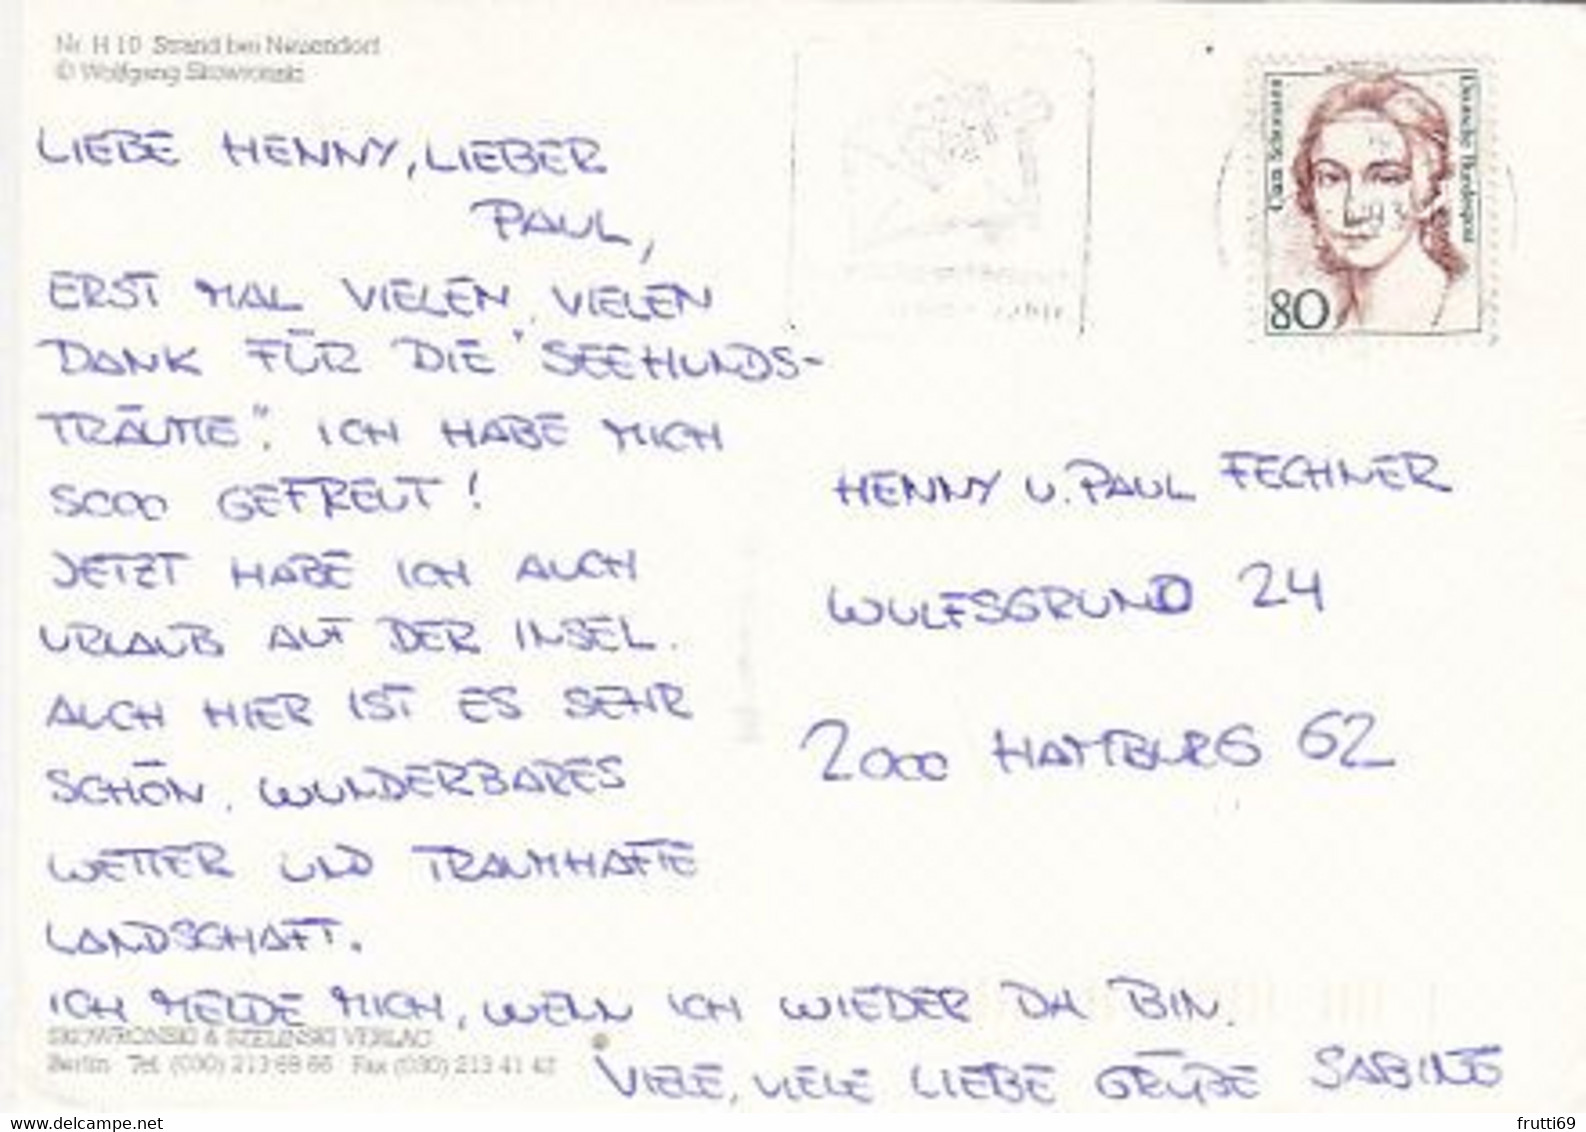 Nr. H 10 Strand bei Neuendorf
© Wolfgang Skowronski
LIEBE HENNY, LIEBER
PAUL,
ERST MAL VIELEN, VIELEN
DANK FÜR DIE "SEEHUNDS-
TRÄUME". ICH HABE MICH
SOOO GEFREUT!
JETZT HABE ICH AUCH
URLAUB AUF DER INSEL.
AUCH HIER IST ES SEHR
SCHÖN, WUNDERBARES
WETTER UND TRAUMHAFTE
LANDSCHAFT.
ICH MELDE MICH, WENN ICH WIEDER DA BIN.
VIELE, VIELE LIEBE GRÜßE SABINE
SKOWRONSKI & SZELINSKI VERLAG
Berlin Tel. (030) 213 68 66 Fax (030) 213 41 42
Deutsche Bundespost
80
HENNY U. PAUL FECHNER
WULFSGRUND 24
2000 HAMBURG 62
www.delcampe.net
frutti69